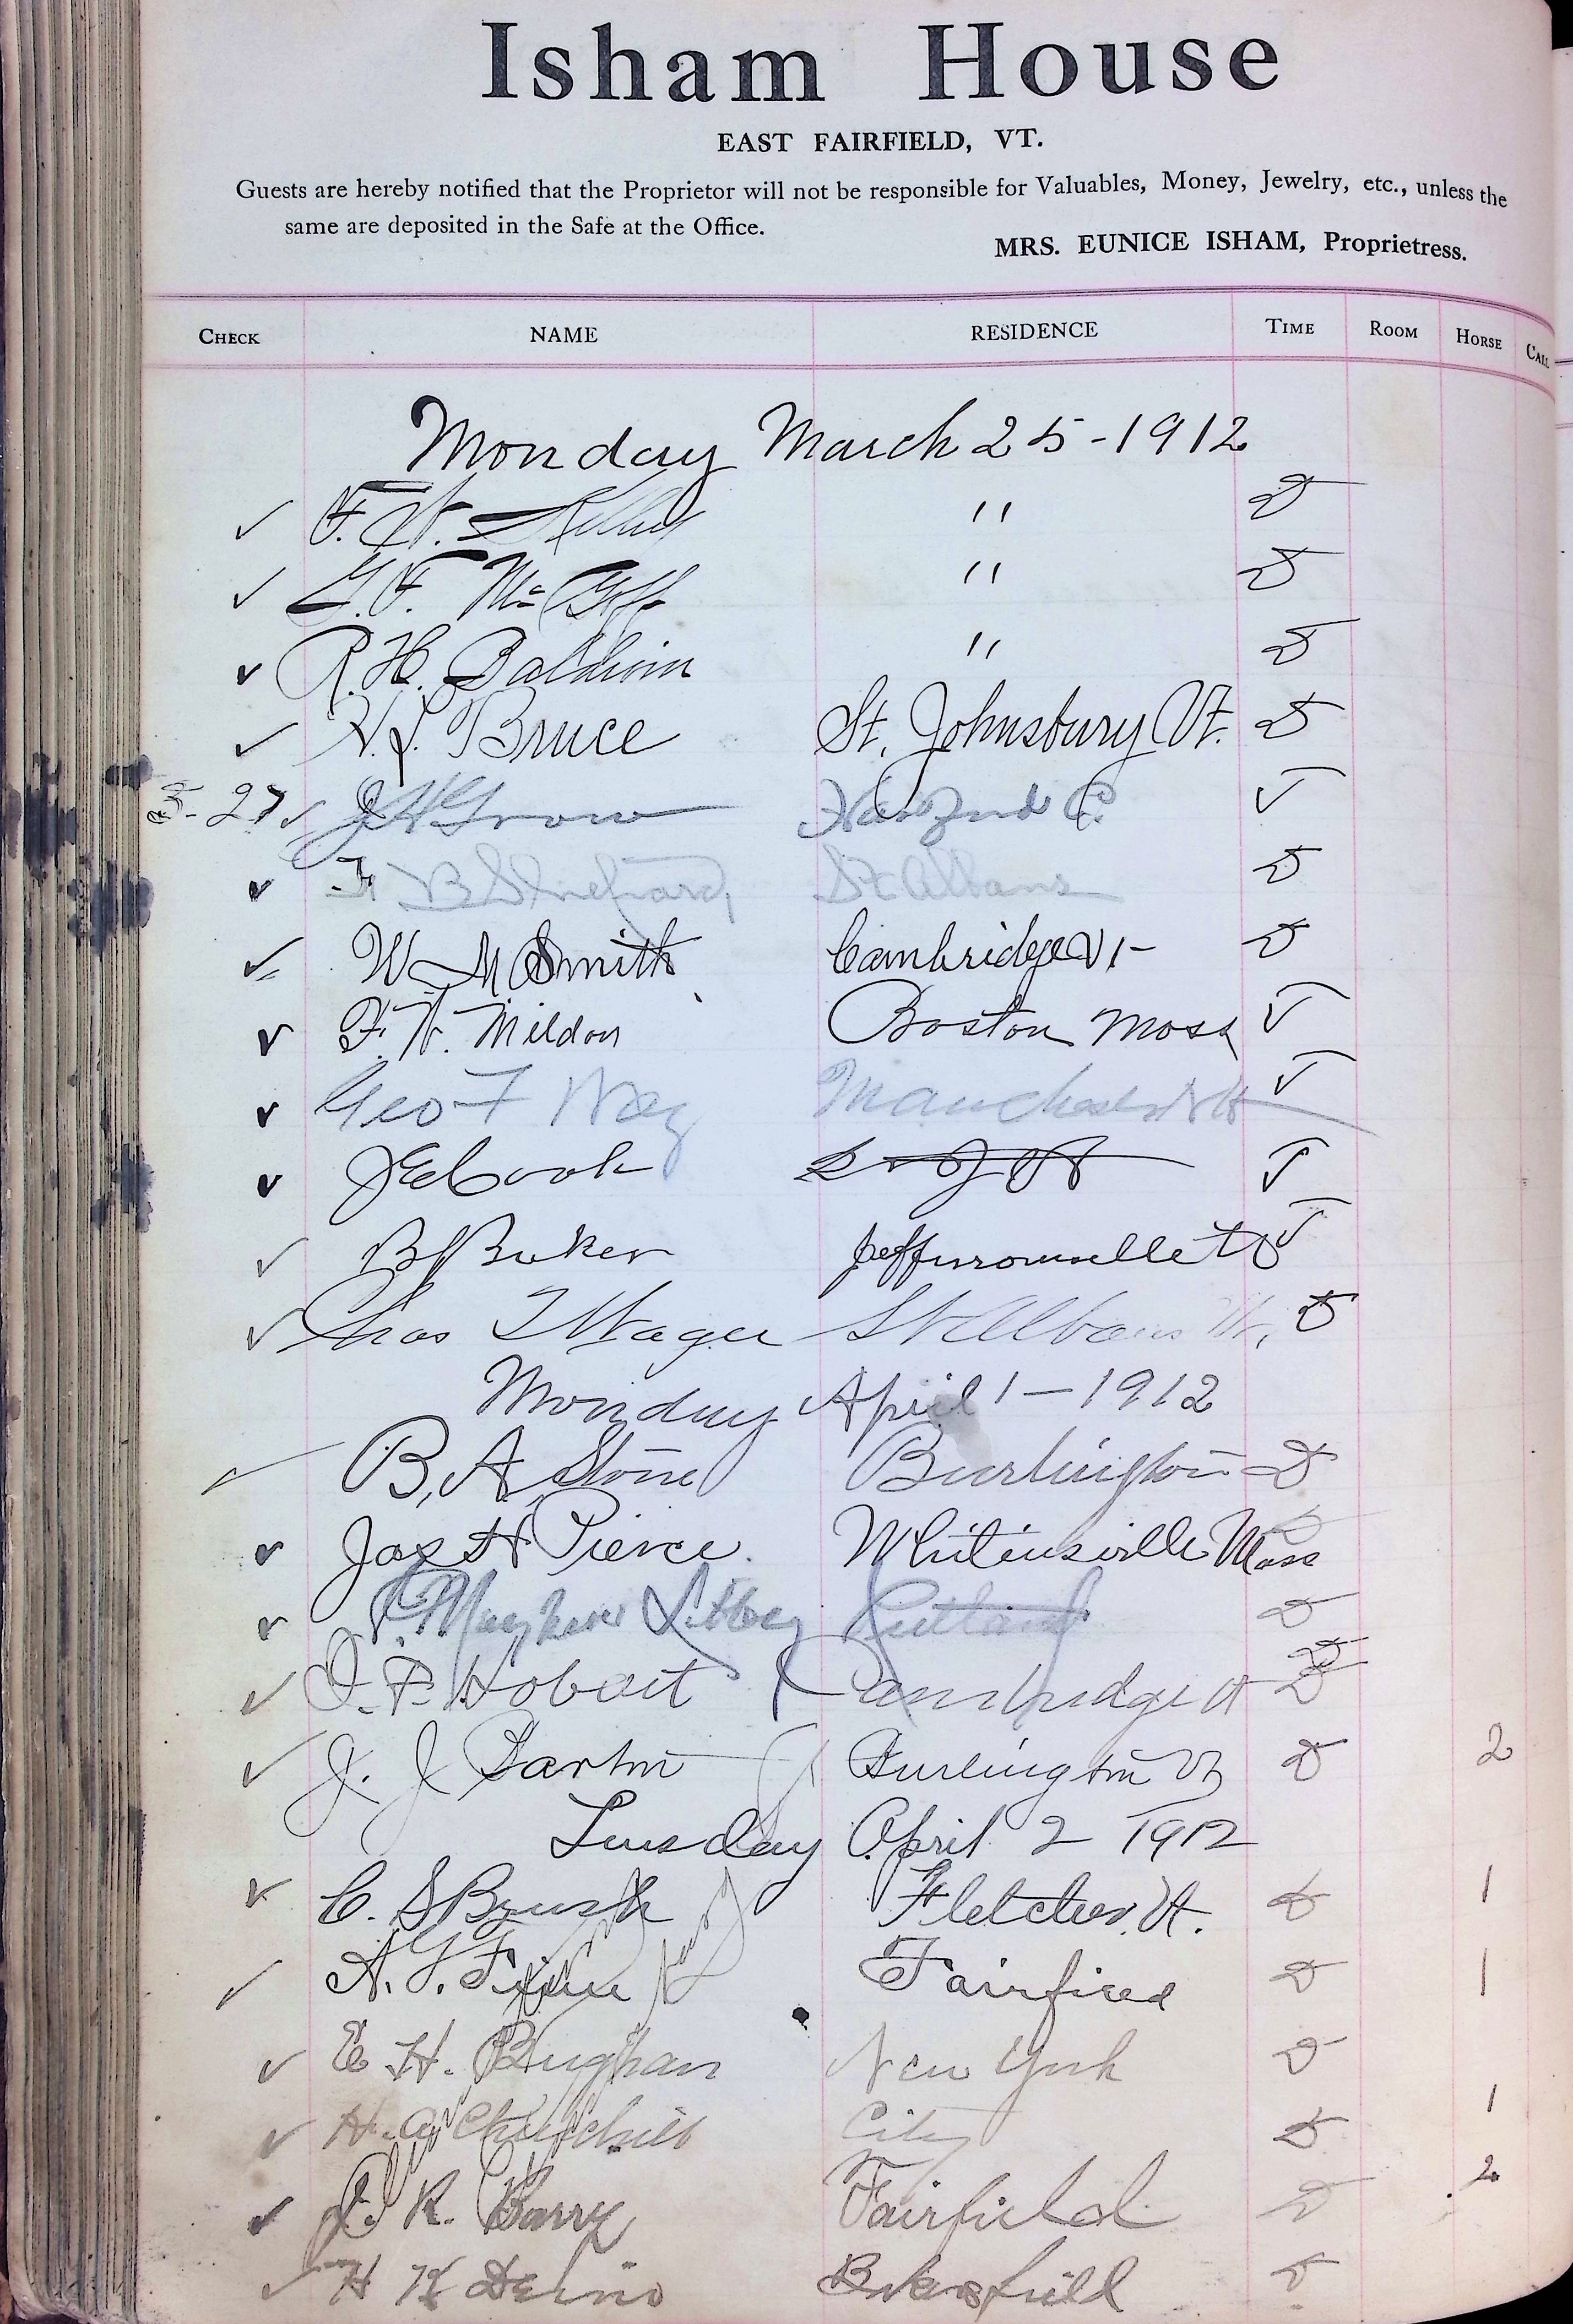 Isham House
EAST FAIRFIELD, VT.
Guests are hereby notified that the Proprietor will not be responsible for Valuables, Money, Jewelry, etc., unless the
same are deposited in the Safe at the Office.
MRS. EUNICE ISHAM, Proprietress.
CHECK NAME RESIDENCE TIME ROOM HORSE CALL
Monday March 25-1912
✓ F. W. Kelley " D
✓ G. F. McGoff " D
✓ R. H. Baldwin " D
✓ H. L. Bruce St. Johnsbury Vt. D
27 ✓ J H Grow ✓
✓ B Shephard St Albans D
✓ W M Smith Cambridge Vt D
✓ F. W. Mildon Boston Mass ✓
✓ Geo F Way Manchester N H ✓
✓ J E Cook ✓
✓ B J Baker Jeffersonville Vt ✓
✓ Chas Wager St Albans Vt. D
Monday April 1-1912
✓ B, A Stone Burlington D
✓ Jas H Pierce Whitinsville Mass
✓ Libbey Rutland D
✓ I. P. Hobart Cambridge Vt D
✓ J. J. Burlington Vt D 2
Tuesday April 2 1912
✓ C. S Brush Fletcher Vt. D 1
✓ A. G. Fairfield D 1
✓ E H. Bingham New York D
✓ H. A Churchill City D 1
✓ J. R. Barry Fairfield D 2
✓ H Bakersfield D